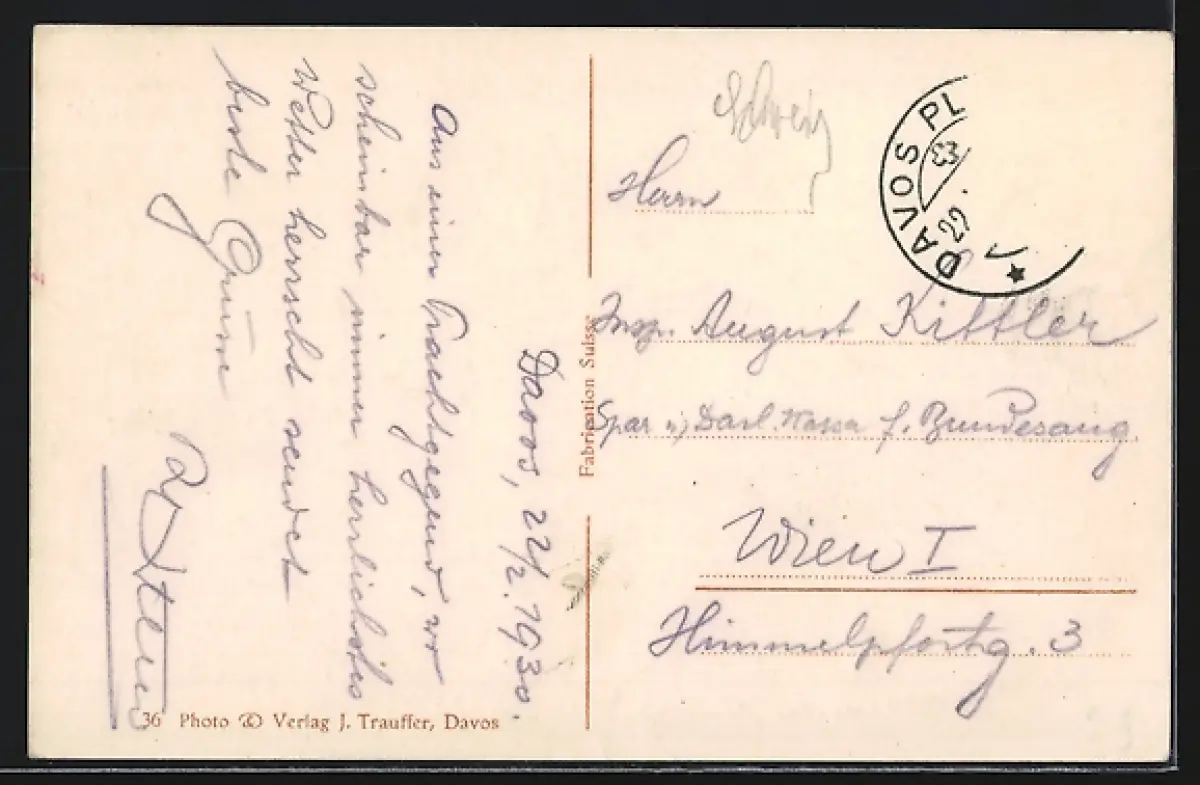 Davos, 22/2. 1930.
Aus einer Prachtgegend, wo
scheinbar immer herrlichstes
Wetter herrscht sendet
beste Grüsse
Dr
Schweiz
Herrn
Insp. August Kittler
Spar u. Darl. Kassa f. Bundesang.
Wien I
Himmelpfortg. 3
DAVOS PL
Fabrication Suisse
36 Photo © Verlag J. Trauffer, Davos